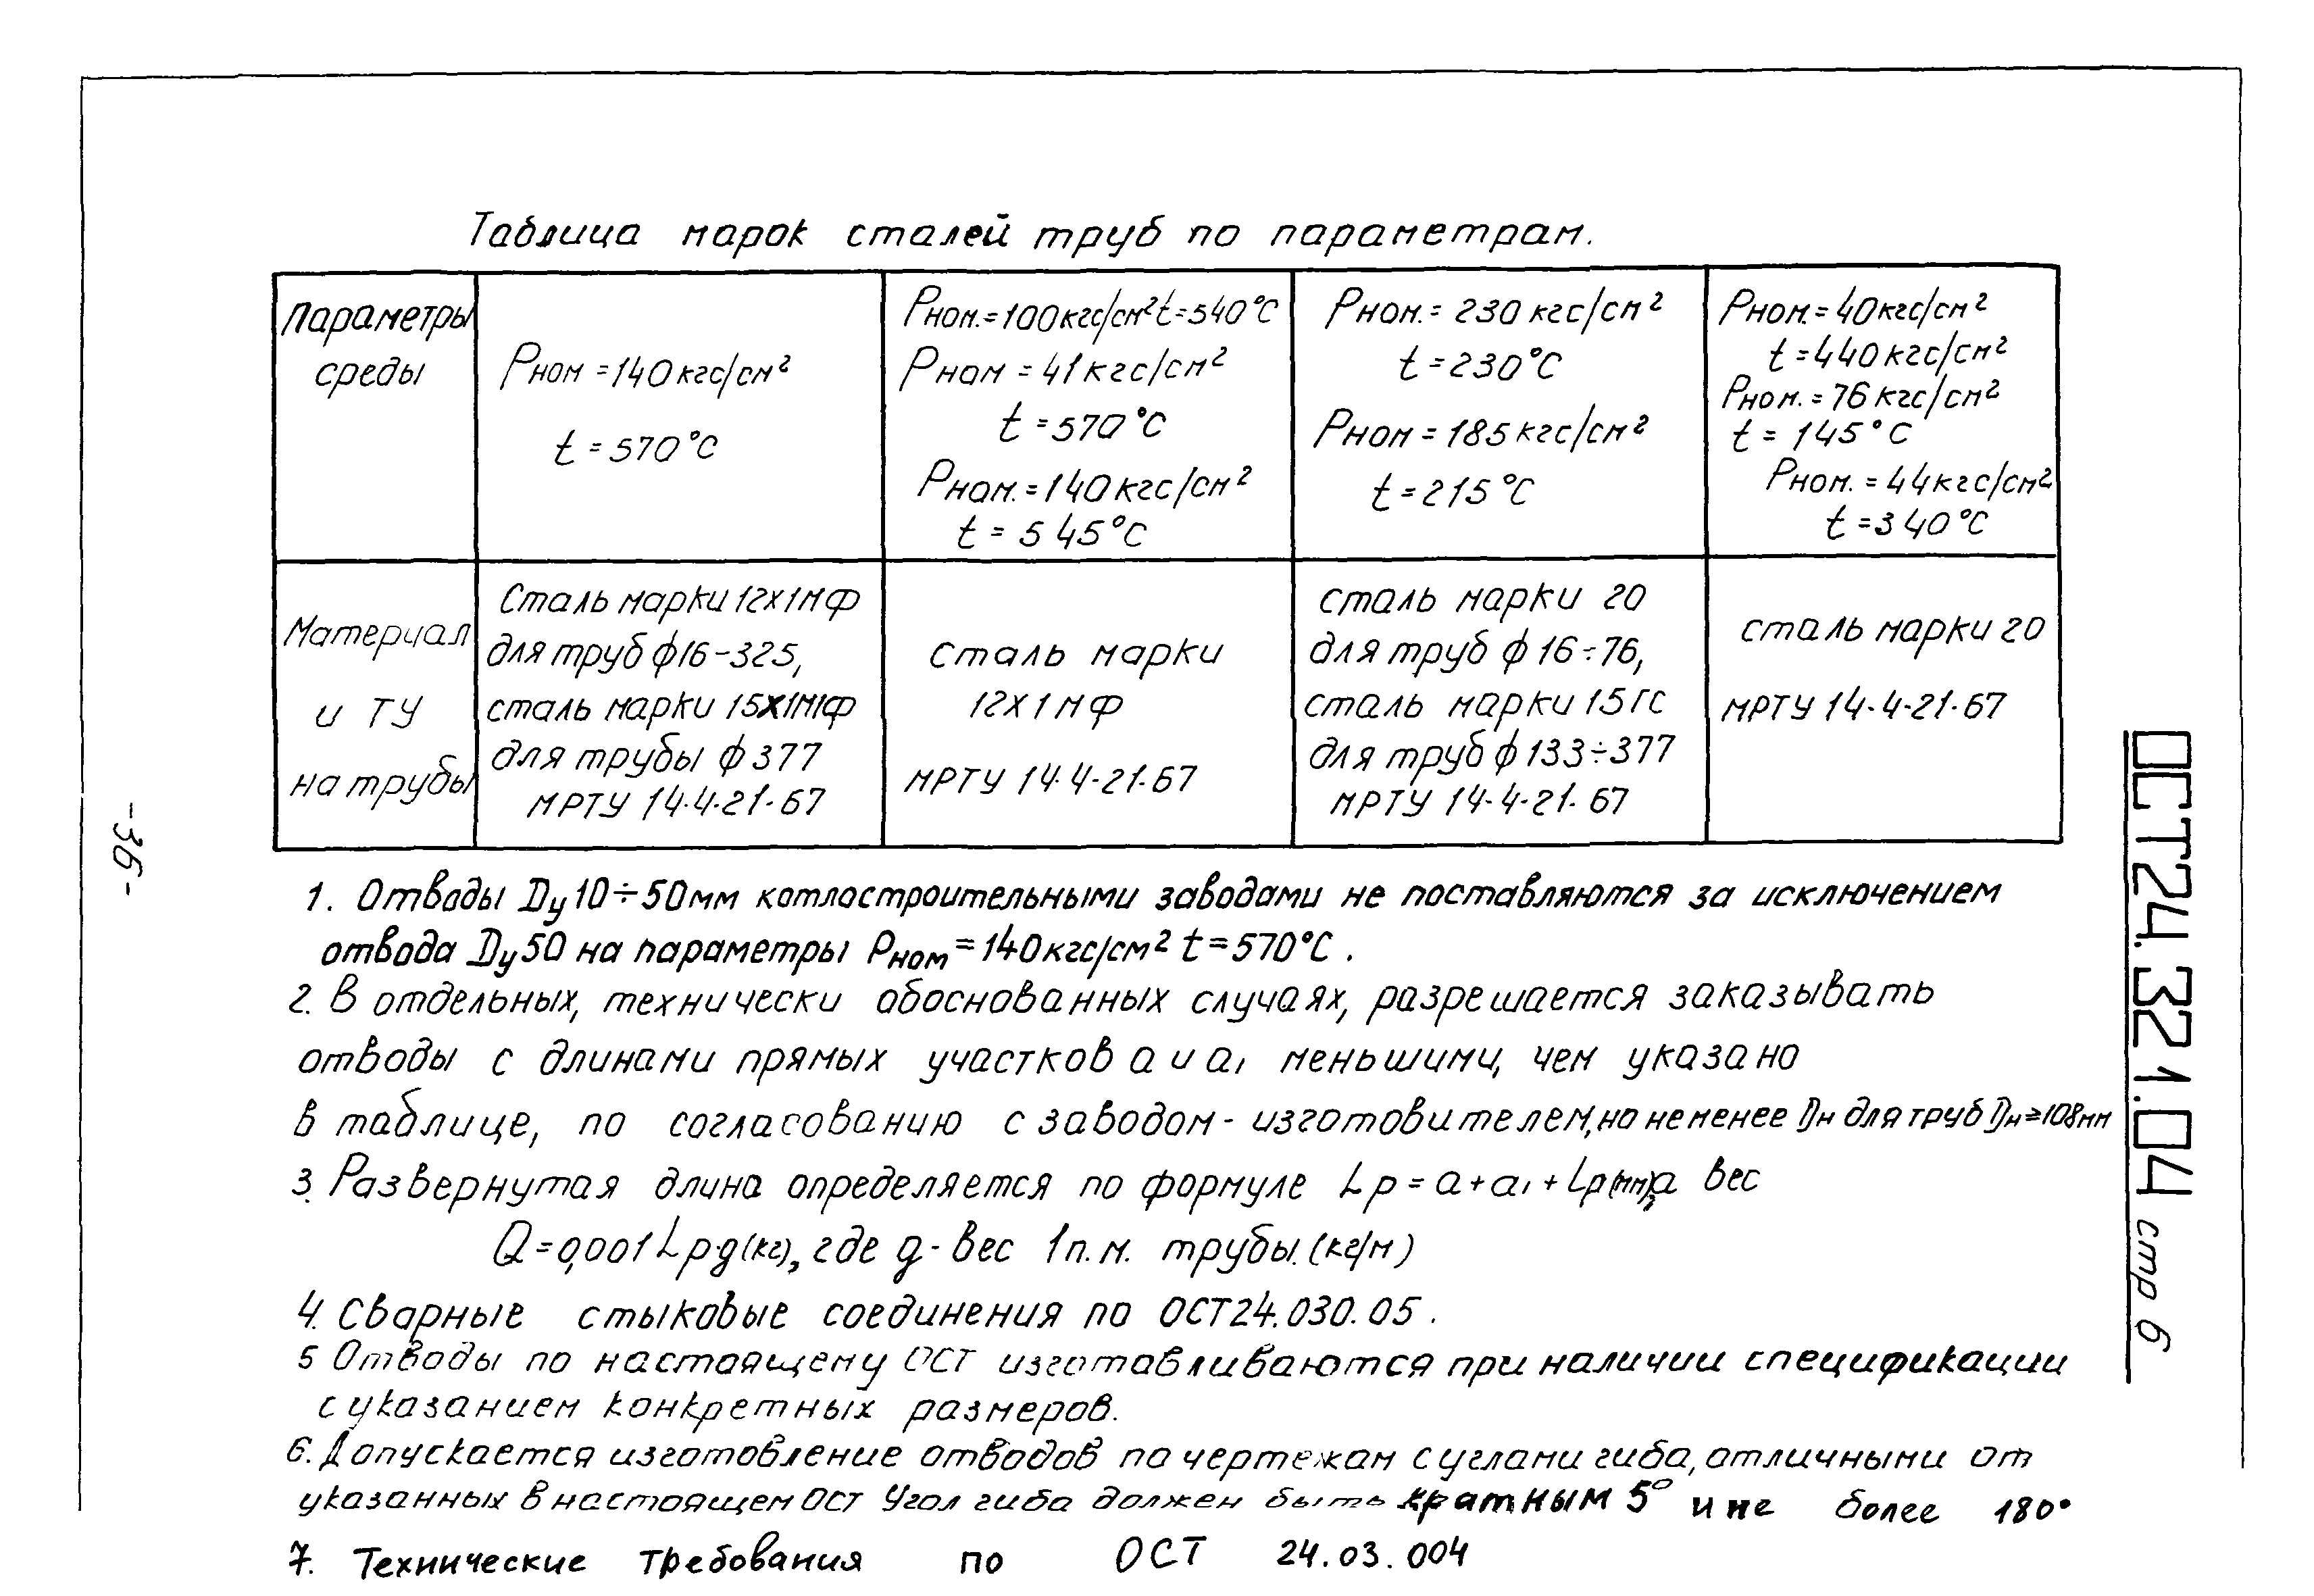 Таблица марок сталей труб по параметрам.
Параметры
среды
Рном = 140 кгс/см²
t = 570°С
Рном. = 100 кгс/см² t = 540°С
Рном = 41 кгс/см²
t = 570°С
Рном. = 140 кгс/см²
t = 545°С
Рном. = 230 кгс/см²
t = 230°С
Рном = 185 кгс/см²
t = 215°С
Рном. = 40 кгс/см²
t = 440 кгс/см²
Рном. = 76 кгс/см²
t = 145°С
Рном. = 44 кгс/см²
t = 340°С
Материал
и ТУ
на трубы
Сталь марки 12х1мф
для труб ф16-325,
сталь марки 15х1м1ф
для трубы ф377
МРТУ 14-4-21-67
сталь марки
12х1мф
МРТУ 14-4-21-67
сталь марки 20
для труб ф16÷76,
сталь марки 15гс
для труб ф133÷377
МРТУ 14-4-21-67
сталь марки 20
МРТУ 14-4-21-67
1. Отводы Dу10÷50мм котлостроительными заводами не поставляются за исключением
отвода Dу50 на параметры Рном = 140 кгс/см² t = 570°С.
2. В отдельных, технически обоснованных случаях, разрешается заказывать
отводы с длинами прямых участков а и а₁ меньшими, чем указано
в таблице, по согласованию с заводом-изготовителем, но не менее Dн для труб Dн ≥ 108мм
3. Развернутая длина определяется по формуле Lр = а + а₁ + Lр(мм), а вес
Q = 0,001 Lр·g (кг), где g - вес 1 п.м. трубы. (кг/м)
4. Сварные стыковые соединения по ОСТ24.030.05.
5 Отводы по настоящему ОСТ изготавливаются при наличии спецификации
с указанием конкретных размеров.
6. Допускается изготовление отводов по чертежам с углами гиба, отличными от
указанных в настоящем ОСТ Угол гиба должен быть кратным 5° и не более 180°
7. Технические требования по ОСТ 24.03.004
-36-
ОСТ24.321.04 стр 6